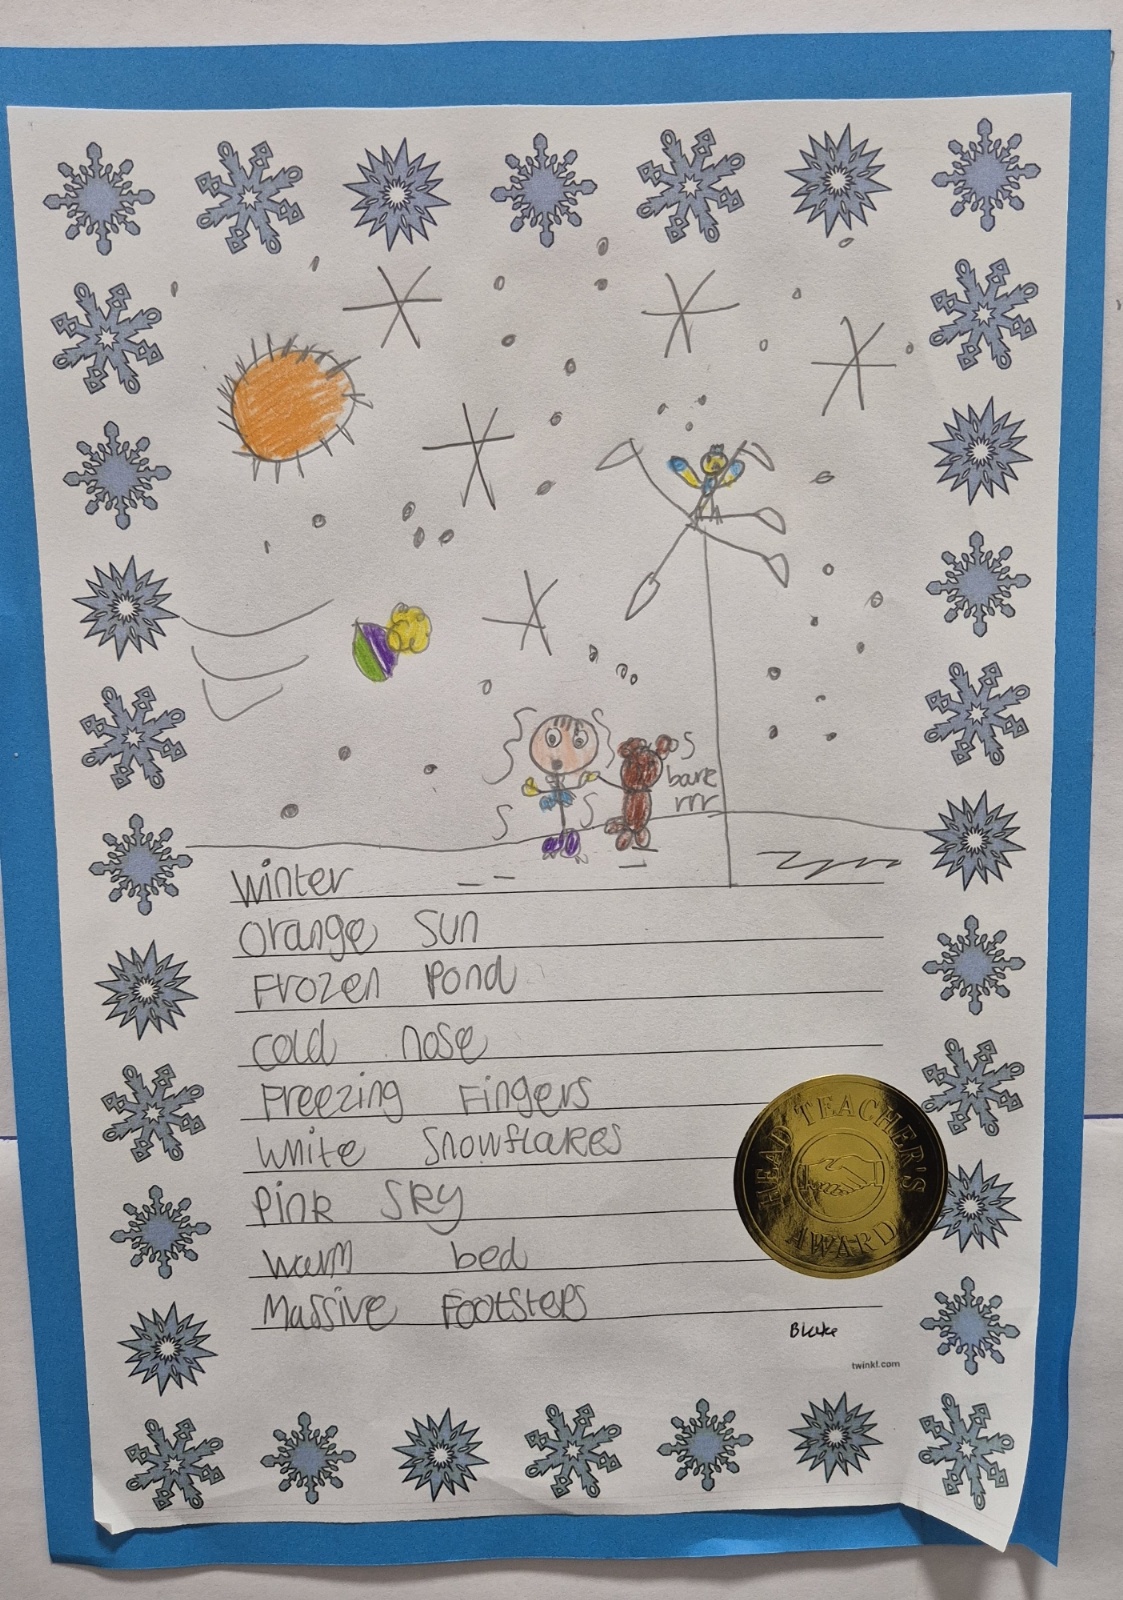 bare
rrr
winter
orange sun
Frozen Pond
cold nose
Freezing Fingers
White Snowflakes
Pink Sky
warm bed
Massive Footsteps
HEAD TEACHER'S
AWARD
Blake
twinkl.com